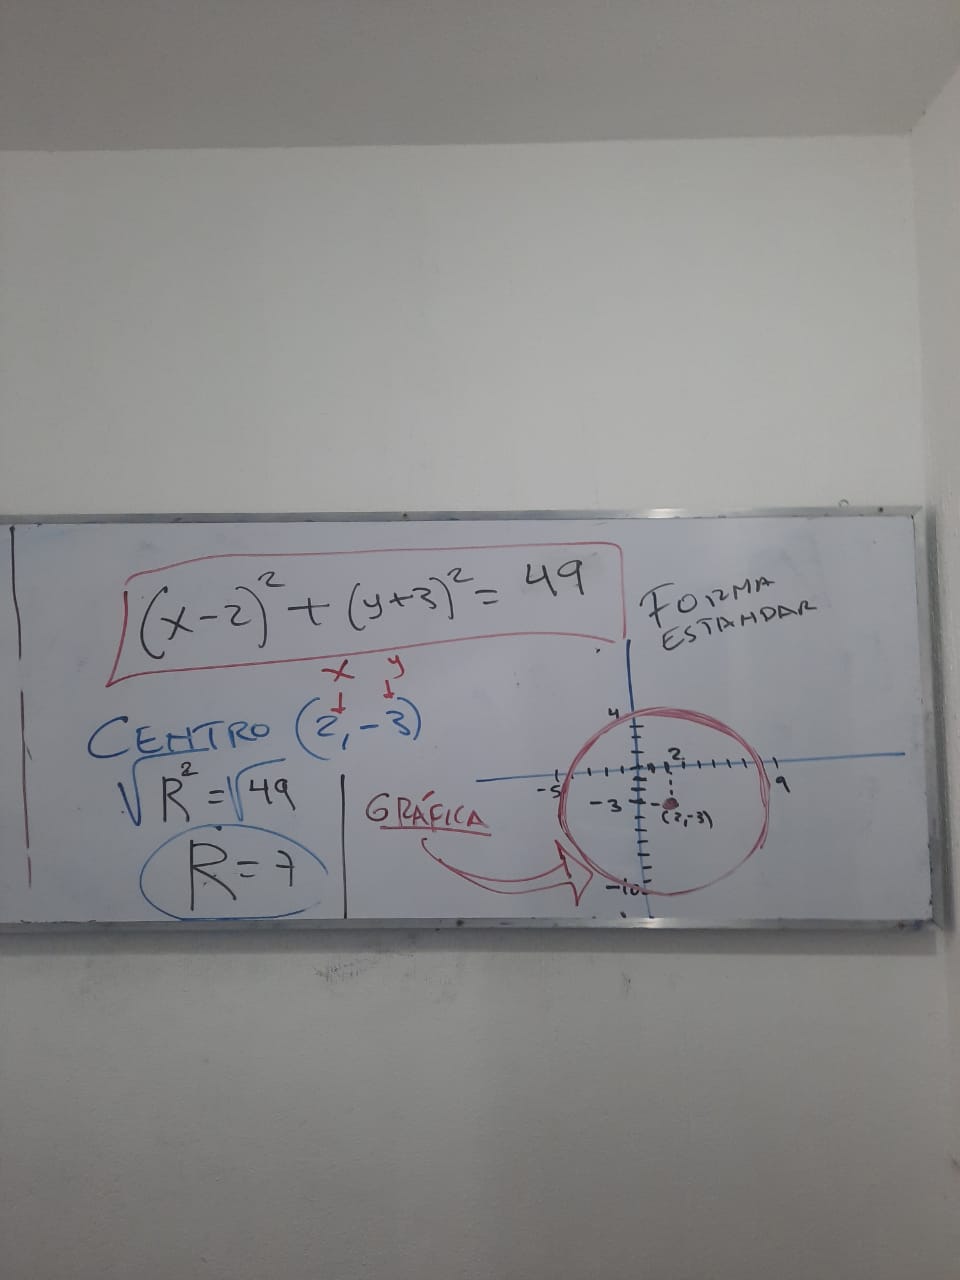 (x-2)² + (y+3)² = 49
FORMA
ESTANDAR
x y
CENTRO (2, -3)
√R² = √49
R = 7
GRÁFICA
4
2
-5
9
-3
(2,-3)
-10